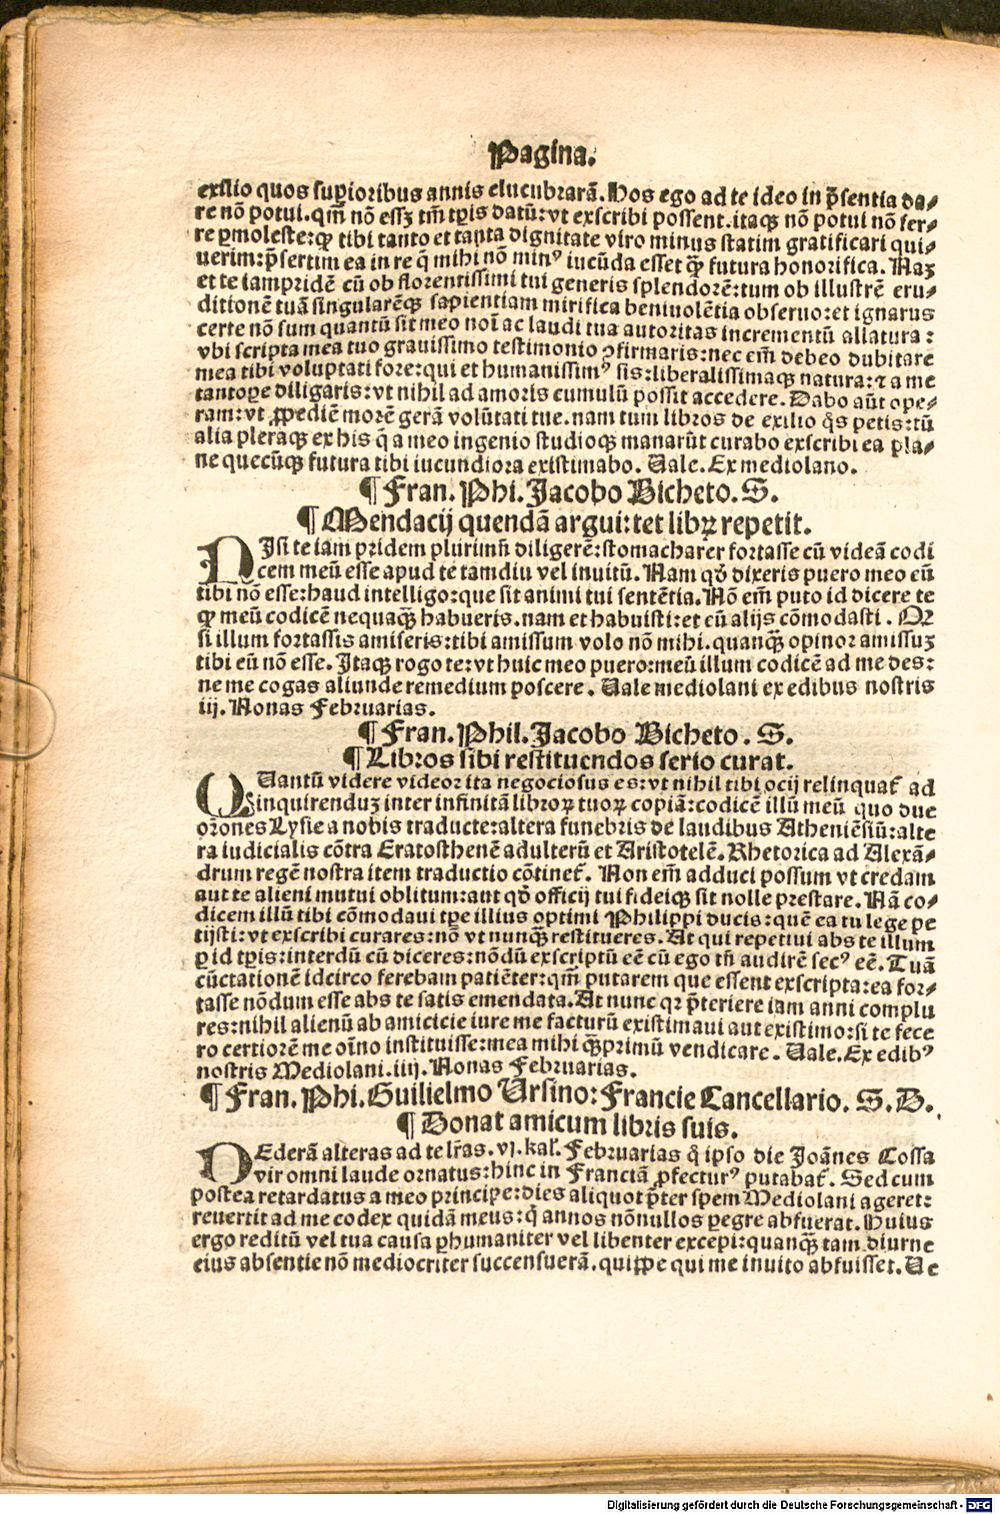 Pagina.
exilio quos supioribus annis elucubrarā. Hos ego ad te ideo in p̄sentia da⸗
re nō potui. qm̄ nō essꝫ tm̄ tp̄is datū: vt exscribi possent. itaqꝫ nō potui nō fer⸗
re ꝑmoleste: ꝙ tibi tanto et tanta dignitate viro minus statim gratificari qui⸗
uerim: p̄sertim ea in re q̄ mihi nō minꝰ iucūda esset q̄ꝫ futura honorifica. Naꝫ
et te iampridē cū ob florentissimi tui generis splendorē: tum ob illustrē eru⸗
ditionē tuā singularēqꝫ sapientiam mirifica beniuolētia obseruo: et ignarus
certe nō sum quantū sit meo noī ac laudi tua autoritas incrementū allatura:
vbi scripta mea tuo grauissimo testimonio ꝯfirmaris: nec em̄ debeo dubitare
mea tibi voluptati fore: qui et humanissimꝰ sis: liberalissimaqꝫ natura: ⁊ a me
tantoꝑe diligaris: vt nihil ad amoris cumulū possit accedere. Dabo aūt ope⸗
ram: vt ꝓpediē morē gerā volūtati tue. nam tum libros de exilio q̄s petis: tū
alia pleraqꝫ ex his q̄ a meo ingenio studioqꝫ manarūt curabo exscribi ea pla⸗
ne quecūqꝫ futura tibi iucundiora existimabo. Uale. Ex mediolano.
¶ Fran. Phi. Jacobo Bicheto. S.
¶ Mendacij quendā argui: tet libꝝ repetit.
NIsi te iam pridem plurimū diligerē: stomacharer fortasse cū videā codi
cem meū esse apud te tamdiu vel inuitū. Nam qd̄ dixeris puero meo eū
tibi nō esse: haud intelligo: que sit animi tui sentētia. Nō em̄ puto id dicere te
ꝙ meū codicē nequaq̄ꝫ habueris. nam et habuisti: et eū alijs cōmodasti. Qꝛ
si illum fortassis amiseris: tibi amissum volo nō mihi. quanq̄ꝫ opinor amissuꝫ
tibi eū nō esse. Itaqꝫ rogo te: vt huic meo puero: meū illum codicē ad me des:
ne me cogas aliunde remedium poscere. Uale mediolani ex edibus nostris
iij. Nonas Februarias.
¶ Fran. Phil. Jacobo Bicheto. S.
¶ Libros sibi restituendos serio curat.
QUantū videre videor ita negociosus es: vt nihil tibi ocij relinquat᷑ ad
inquirenduꝫ inter infinitā libroꝝ tuoꝝ copiā: codicē illū meū quo due
or̄ones Lysie a nobis traducte: altera funebris de laudibus Atheniēsiū: alte
ra iudicialis cōtra Eratosthenē adulterū et Aristotelē. Rhetorica ad Alexā⸗
drum regē nostra item traductio cōtinet᷑. Non em̄ adduci possum vt credam
aut te alieni mutui oblitum: aut qd̄ officij tui fideiqꝫ sit nolle prestare. Nā co⸗
dicem illū tibi cōmodaui tp̄e illius optimi Philippi ducis: quē ea tu lege pe
tijsti: vt exscribi curares: nō vt nunq̄ꝫ restitueres. At qui repetiui abs te illum
ꝑ id tp̄is: interdū cū diceres: nōdū exscriptū eē cū ego tn̄ audirē secꝰ eē. Tuā
cūctationē idcirco ferebam patiēter: qm̄ putarem que essent exscripta: ea for⸗
tasse nōdum esse abs te satis emendata. At nunc qꝛ p̄teriere iam anni complu
res: nihil alienū ab amicicie iure me facturū existimaui aut existimo: si te fece
ro certiorē me oīno instituisse: mea mihi q̄ꝫprimū vendicare. Uale. Ex edibꝰ
nostris Mediolani. iiij. Nonas Februarias.
¶ Fran. Phi. Guilielmo Ursino: Francie Cancellario. S. D.
¶ Donat amicum libris suis.
DEderā alteras ad te lr̄as. vj. kal̓. Februarias q̄ ipso die Joānes Cossa
vir omni laude ornatus: hinc in Franciā ꝓfecturꝰ putabat᷑. Sed cum
postea retardatus a meo principe: dies aliquot p̄ter spem Mediolani ageret:
reuertit ad me codex quidā meus: q̄ annos nōnullos ꝑegre abfuerat. Huius
ergo reditū vel tua causa ꝑhumaniter vel libenter excepi: quanq̄ꝫ tam diurne
eius absentie nō mediocriter succensuerā. quippe qui me inuito abfuisset. Ue
Digitalisierung gefördert durch die Deutsche Forschungsgemeinschaft - DFG